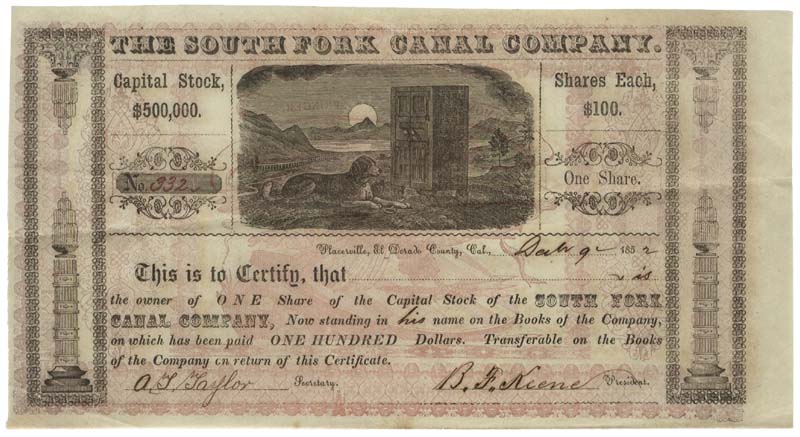 THE SOUTH FORK CANAL COMPANY.
Capital Stock,
$500,000.
Shares Each,
$100.
No. 332
One Share.
Placerville, El Dorado County, Cal., 9 1852
This is to Certify, that is
the owner of ONE Share of the Capital Stock of the SOUTH FORK
CANAL COMPANY, Now standing in his name on the Books of the Company,
on which has been paid ONE HUNDRED Dollars. Transferable on the Books
of the Company on return of this Certificate.
A. T. Taylor Secretary. B. F. Keene President.